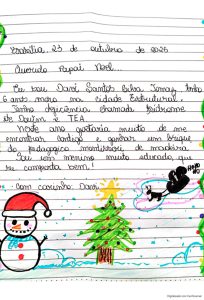 Brasília, 23 de outubro de 2025
Querido Papai Noel...
Eu sou Davi Santos Silva, tenho
6 anos moro na cidade Estrutural.
Tenho deficiência chamada Síndrome
de Down e TEA.
Neste ano gostaria muito de me
encontrar contigo e ganhar um brinque
do pedagógico montessori de madeira.
Sou um menino muito educado que
me comporta bem!
Com carinho Davi.